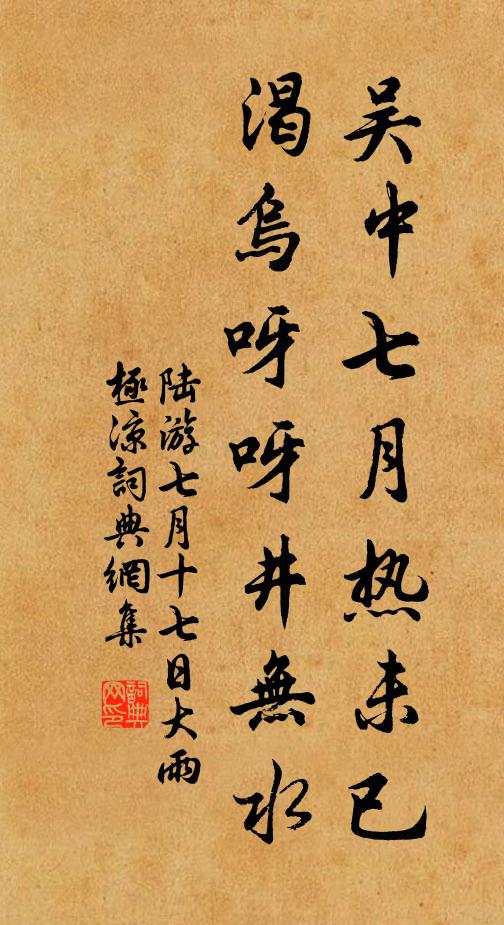 吴中七月热未已
渴烏呀呀井無水
陆游七月十七日大雨
極涼詞典網集
詞典网印